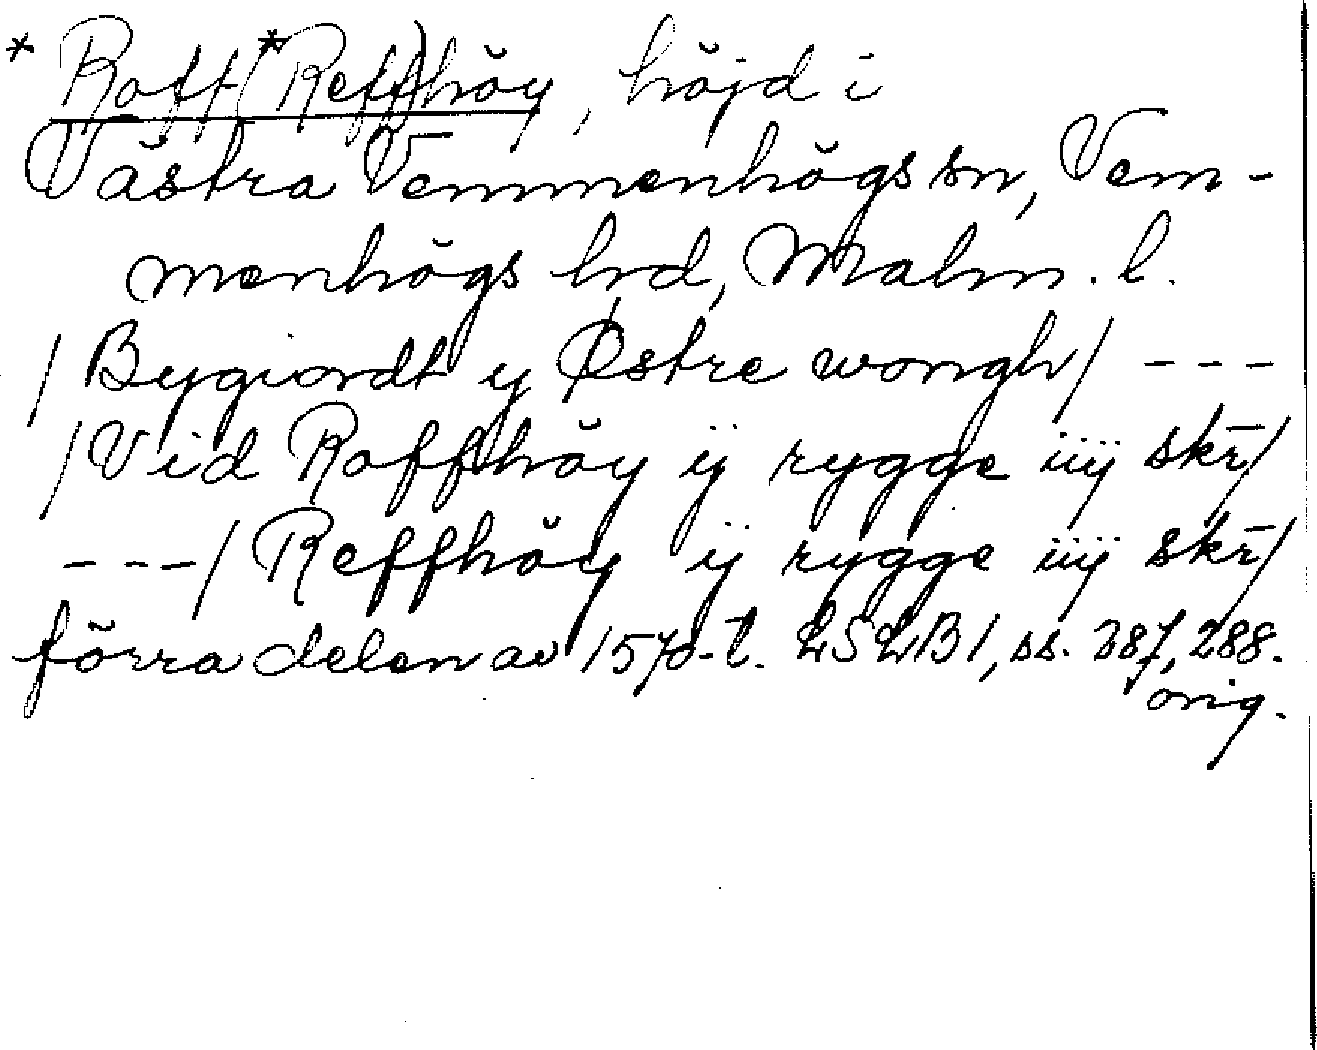 * Roff(*Reff)höy, höjd i
Västra Vemmenhögs sn, Vem-
menhögs hd, Malm. l.
/ Bygiordt y Østre wongh/ ---
/ Vid Roffhöy ÿ rygge iiÿ skr̄/
---/ Reffhöy ÿ rygge iiÿ skr̄/
förra delen av 1570-t. LSLB1, ss. 287, 288.
orig.